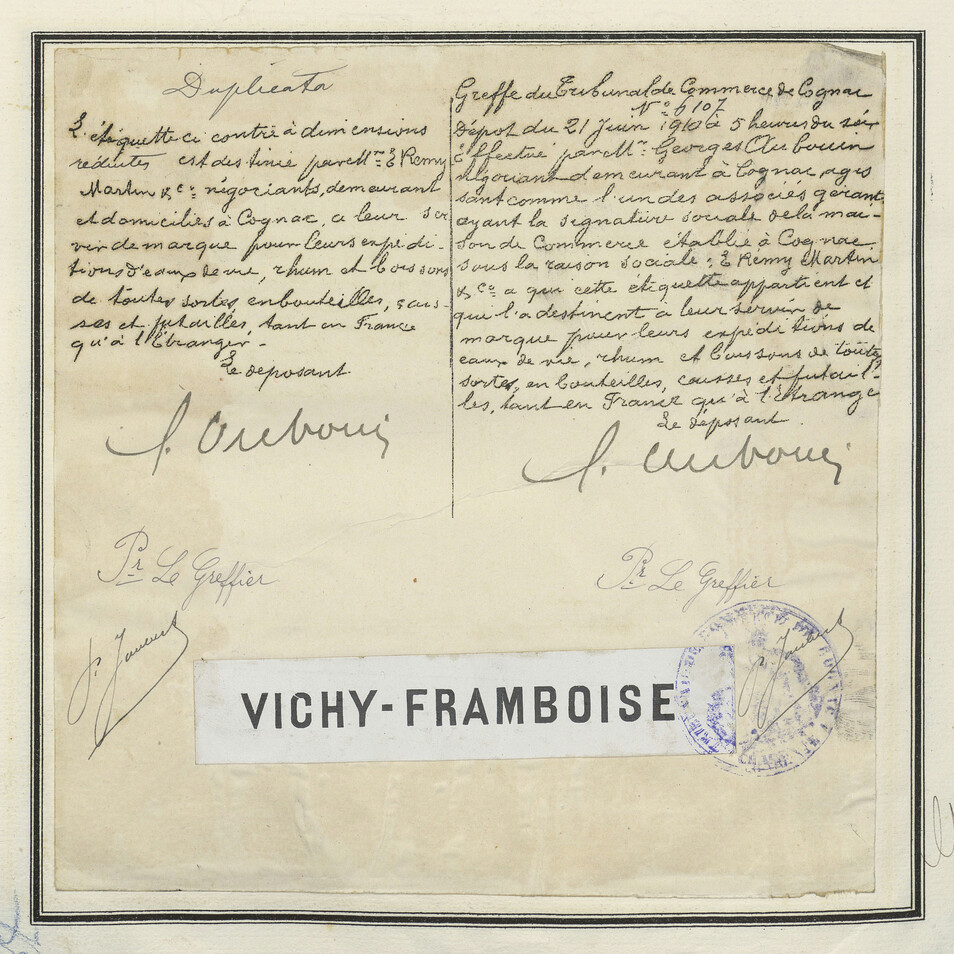 Duplicata
L'étiquette ci contre à dimensions
réduites est destinée par Mrs E Rémy
Martin & Co négociants, demeurant
et domiciliés à Cognac, a leur ser
vir de marque pour leurs expédi-
tions d'eaux de vie, rhum et boissons
de toutes sortes, en bouteilles, cais-
ses et futailles, tant en France
qu'à l'Etranger -
Le déposant
G. Aubouin
Pr Le Greffier
Greffe du Tribunal de Commerce de Cognac
No 6107
Dépot du 21 Juin 1910 à 5 heures du soir
Effectué par Mr Georges Aubouin
négociant demeurant à Cognac, agis
sant comme l'un des associés gérant
ayant la signature sociale de la mai-
son de Commerce établie à Cognac
sous la raison sociale: E Rémy Martin
& Co a qui cette étiquette appartient et
que l'a destinent à leur servir de
marque pour leurs expéditions de
eaux de vie, rhum et boissons de toute
sortes, en bouteilles, caisses et futail-
les, tant en France qu'à l'Etrange
Le déposant.
G. Aubouin
Pr Le Greffier
VICHY-FRAMBOISE